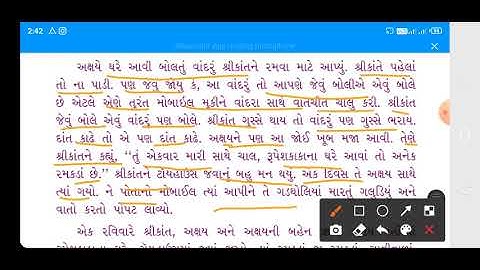 2:42
અક્ષયે ઘરે આવી બોલતું વાંદરું શ્રીકાંતને રમવા માટે આપ્યું. શ્રીકાંતે પહેલાં
તો ના પાડી. પણ જવું જોયું કે, આ વાંદરું તો આપણે જેવું બોલીએ એવું બોલે
છે એટલે એણે તુરંત મોબાઈલ મૂકીને વાંદરા સાથે વાતચીત ચાલુ કરી. શ્રીકાંત
જેવું બોલે એવું વાંદરું પણ બોલે. શ્રીકાંત ગુસ્સે થાય તો વાંદરું પણ ગુસ્સે ભરાયે.
દાંત કાઢે તો એ પણ દાંત કાઢે. અક્ષયને પણ આ જોઈ ખૂબ મજા આવી. તેણે
શ્રીકાંતને કહ્યું, “તું એકવાર મારી સાથે ચાલ, રૂપેશકાકાના ઘરે આવાં તો અનેક
રમકડાં છે.” શ્રીકાંતને ટૉયહાઉસ જેવાનું બહુ મન થયું. એક દિવસ તે અક્ષય સાથે
ત્યાં ગયો. ને પોતાનો મોબાઈલ ત્યાં આપીને તે ગડથોલિયાં મારતું ગલુડિયું અને
વાતો કરતો પોપટ લાવ્યો.
એક રવિવારે શ્રીકાંત, અક્ષય અને અક્ષયની બહેન